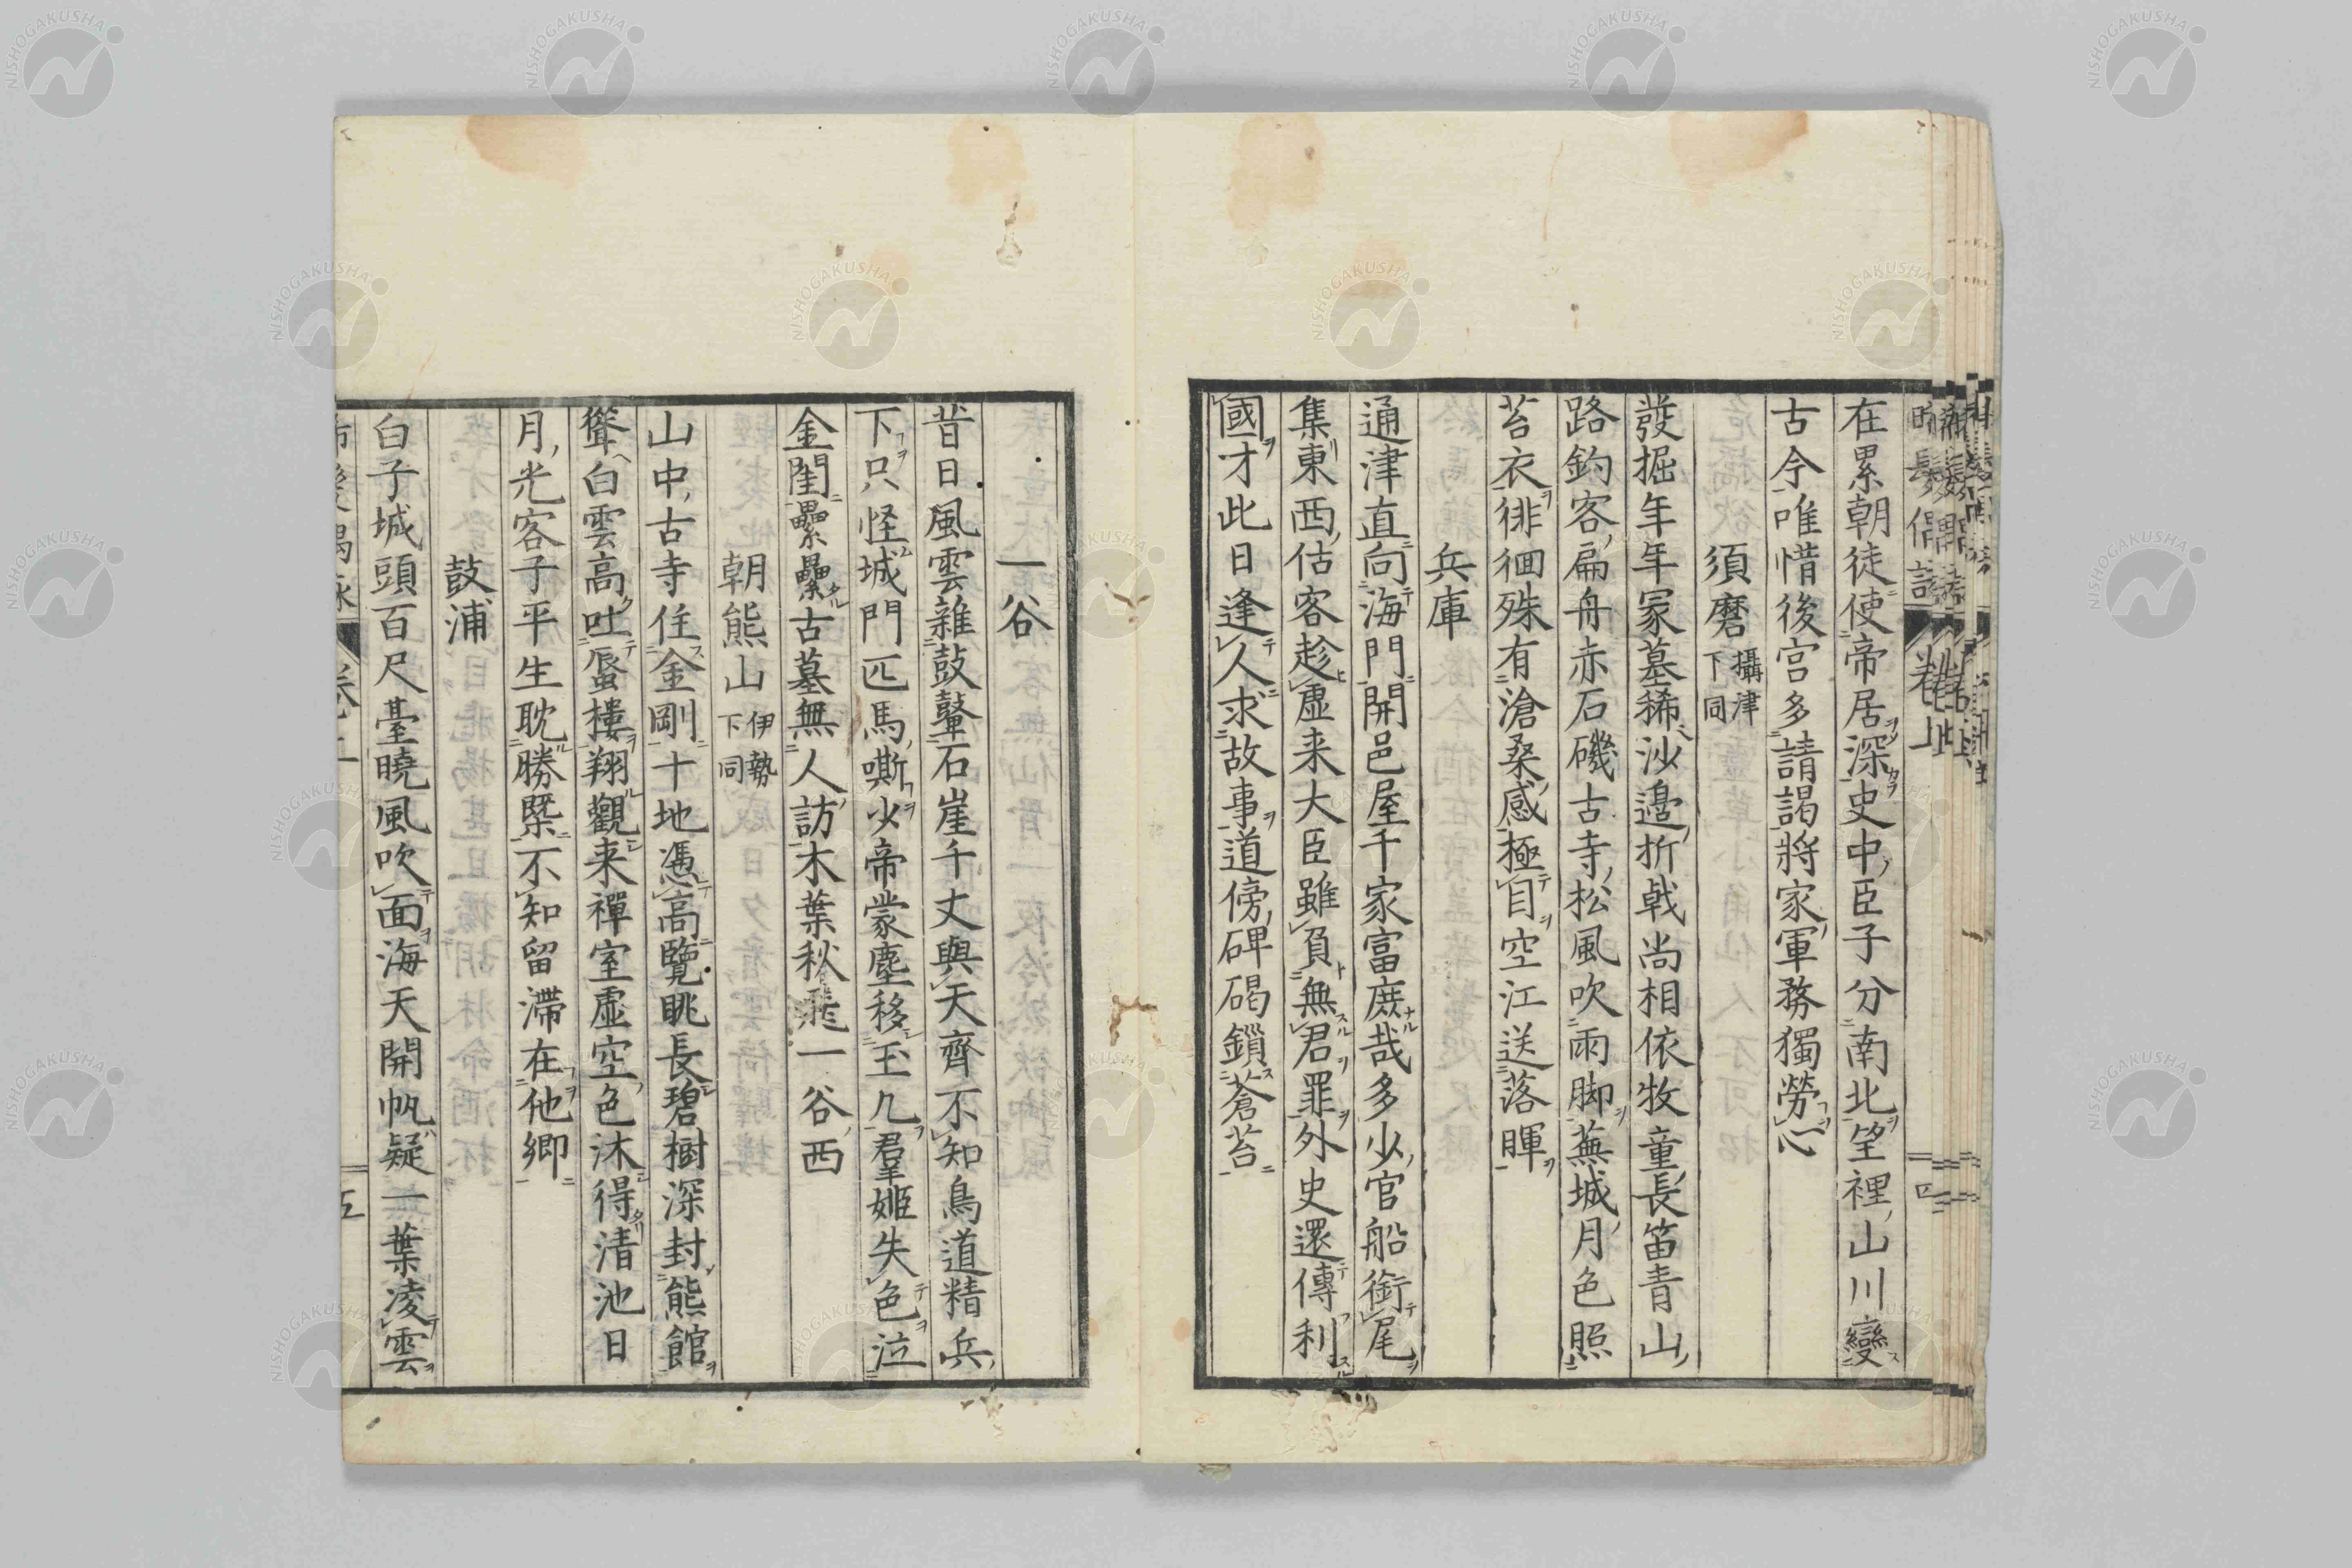 在累朝徒使帝居深史中臣子分南北望裡山川變
古今唯惜後宮多請謁將家軍務獨勞心
須磨 攝津下同
發掘年年冢墓稀沙邊折戟尚相依牧童長笛青山
路釣客扁舟赤石磯古寺松風吹雨脚蕪城月色照
苔衣徘徊殊有滄桑感極目空江送落暉
兵庫
通津直向海門開邑屋千家富庶哉多少官船銜尾
集東西估客趁虛来大臣雖負無君罪外史還傳利
國才此日逢人求故事道傍碑碣鎖蒼苔
一谷
昔日風雲雜鼓鼙石崖千丈與天齊不知鳥道精兵
下只怪城門匹馬嘶少帝蒙塵移玉几羣姬失色泣
金閨纍纍古墓無人訪木葉秋飛一谷西
朝熊山 伊勢下同
山中古寺住金剛十地憑高覽眺長碧樹深封熊館
聳白雲高吐蜃樓翔觀来禪室虛空色沐得清池日
月光客子平生耽勝槩不知留滯在他鄉
鼓浦
白子城頭百尺臺曉風吹面海天開帆疑一葉凌雲
NISHOGAKUSHA